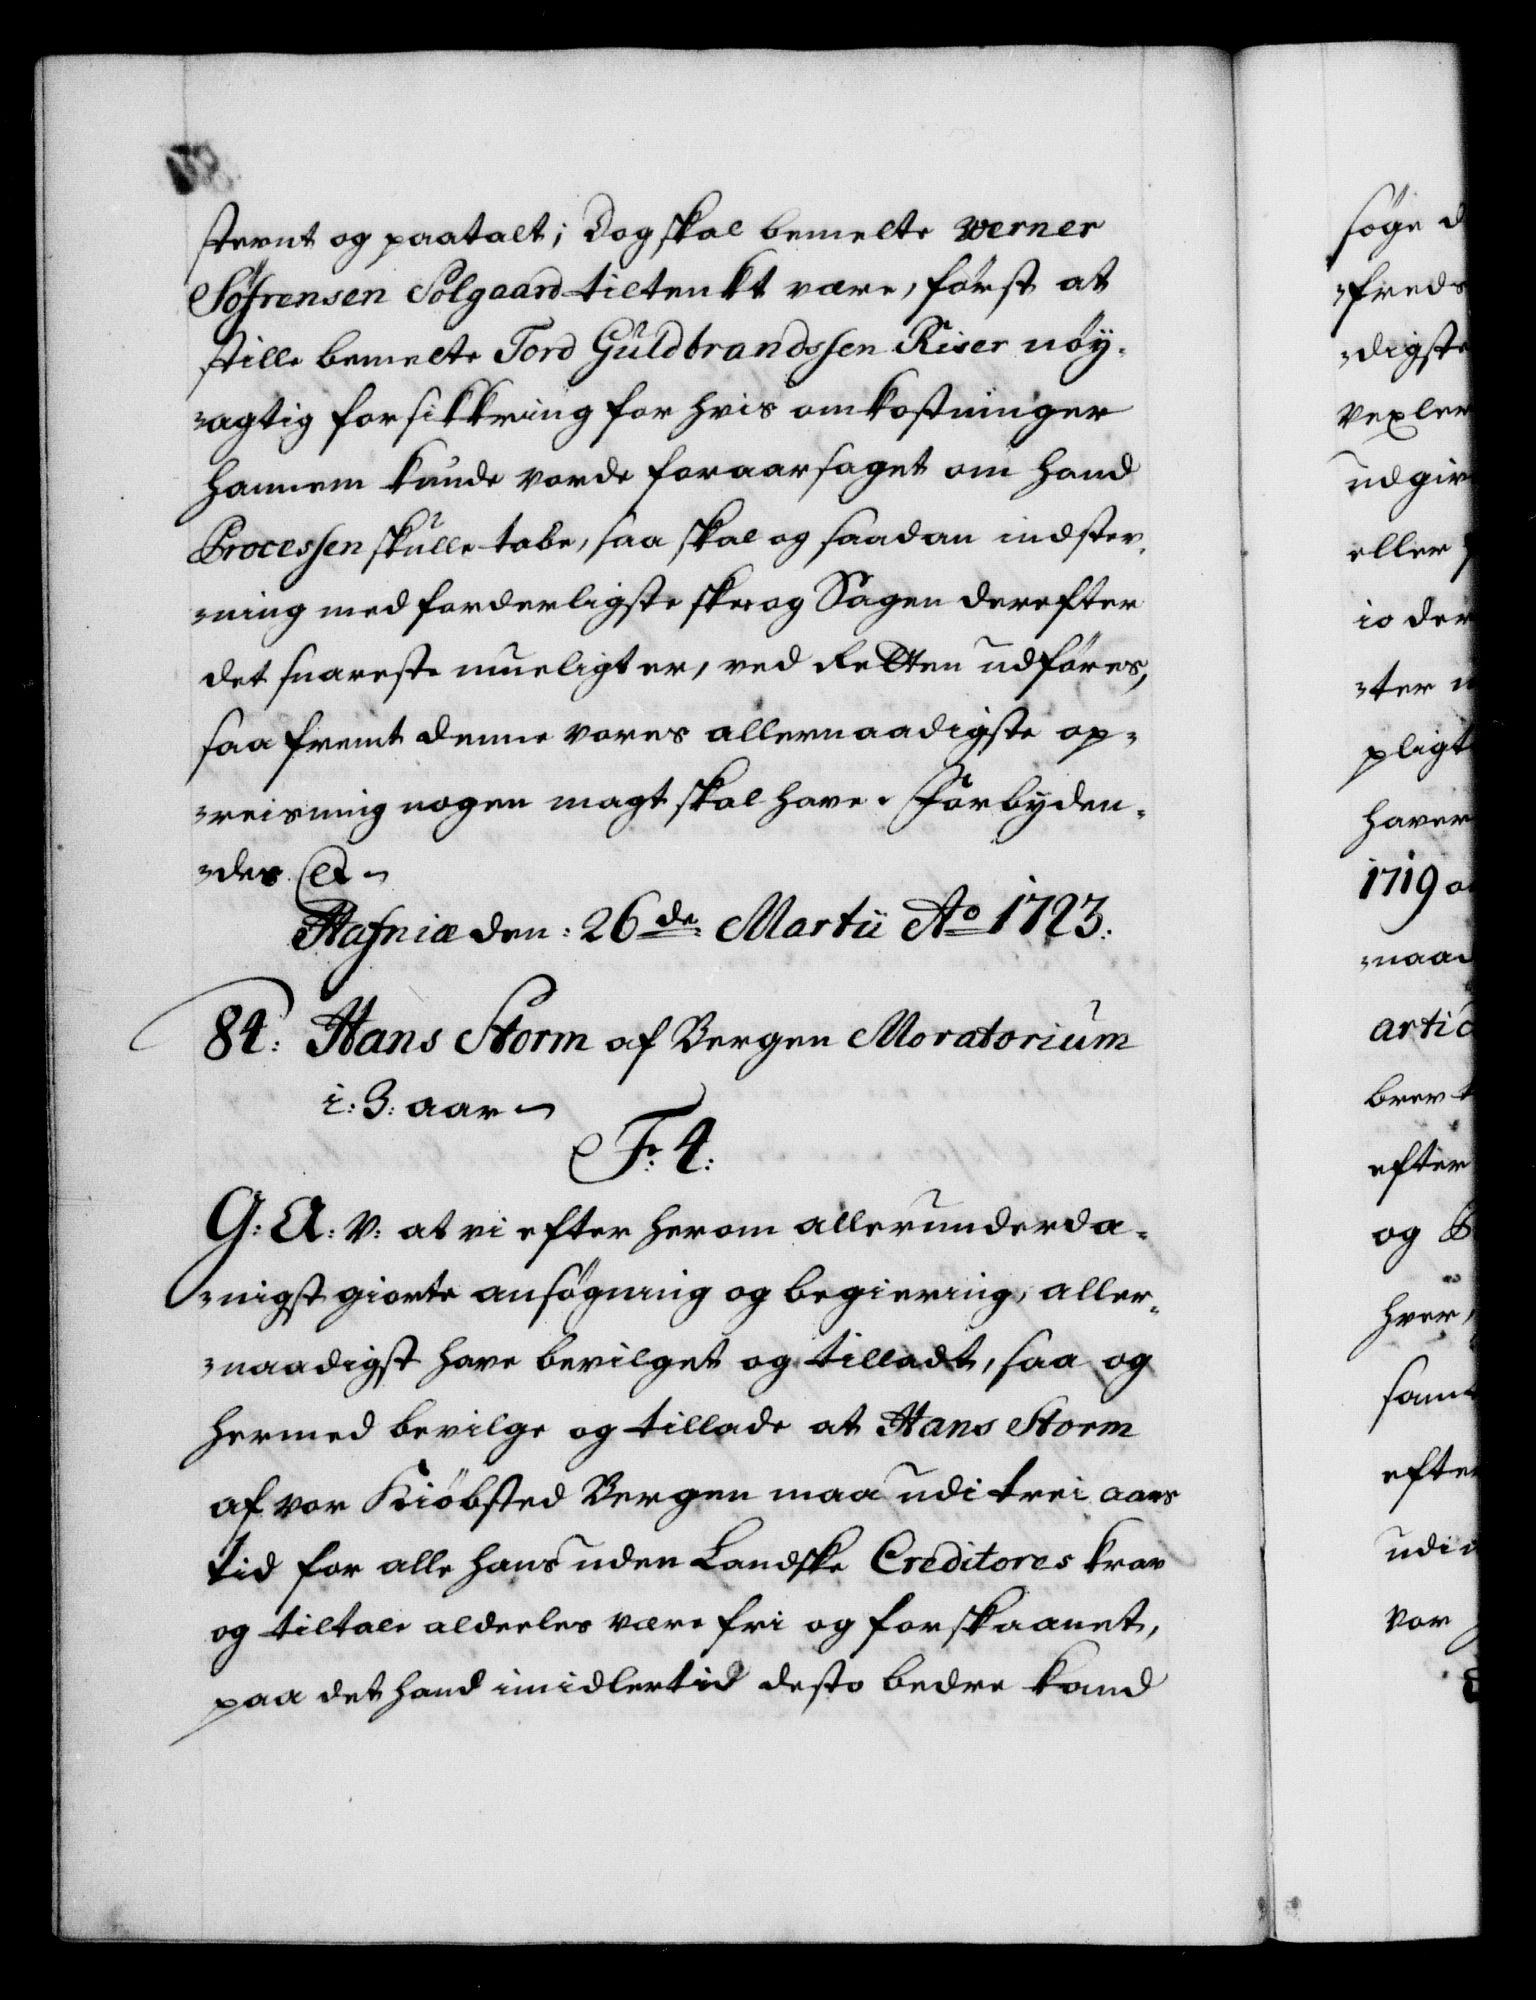 stevnt og paatalt; Dog skal bemelte Werner
Söfrensen Solgaard tiltenkt være, först at
stille bemelte Tord Guldbrandssen Riser nöy-
agtig forsikkring for hvis omkostninger
hannem kunde vorde foraarsaget om hand
Processen skulle tabe, saa skal og saadan indstev-
ning med forderligste skee og Sagen derefter
det snareste mueligt er, ved Retten udföres,
saa fremt denne vores allernaadigste op-
reisning nogen magt skal have. Forbyden-
des &
Hafniæ den: 26de Martii Ao 1723.
84: Hans Storm af Bergen Moratorium
i: 3: aar
Fr: 4:
G: A: V: at vi efter herom allerunderda-
nigst giorte ansögning og begiering, aller-
naadigst have bevilget og tilladt, saa og
hermed bevilge og tillade at Hans Storm
af vor Kiöbsted Bergen maa udi trei aars
tid for alle hans uden Landske Creditores krav
og tiltale aldeeles være fri og forskaanet,
paa det hand imidlertid desto bedre kand
söge
freds
digste
vexler
udgiv
eller
10 der
ter
pligt
haver
1719
naad
artic
brev
efter
og
hver,
samt
efter
udi
vor